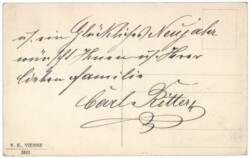 u. ein Glückliches Neujahr
wünscht Ihnen u. Ihrer
lieben Familie
Carl Ritter
V. K., VIENNE